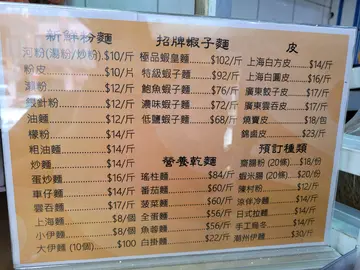 新鮮粉麵
河粉(湯粉/炒粉) $10/斤
粉皮 $10/斤
瀨粉 $12/斤
銀針粉 $12/斤
油麵 $12/斤
檬粉 $14/斤
粗油麵 $14/斤
炒麵 $14/斤
蛋炒麵 $16/斤
車仔麵 $14/斤
雲吞麵 $17/斤
上海麵 $8/個
小伊麵 $8/個
大伊麵 (10個) $100
招牌蝦子麵
極品蝦皇麵 $102/斤
特級蝦子麵 $92/斤
鮑魚蝦子麵 $76/斤
濃味蝦子麵 $72/斤
低鹽蝦子麵 $68/斤
營養乾麵
瑤柱麵 $84/斤
番茄麵 $60/斤
菠菜麵 $60/斤
全蛋麵 $56/斤
魚蓉麵 $56/斤
白掛麵 $22/斤
皮
上海白方皮 $14/斤
上海白圓皮 $16/斤
廣東餃子皮 $17/斤
廣東雲吞皮 $17/斤
燒賣皮 $18/包
錦鹵皮 $23/斤
預訂種類
齋腸粉 (20條) $18/份
蝦米腸 (20條) $20/份
陳村粉 $12/斤
涼伴冷麵 $14/斤
日式拉麵 $14/斤
手工烏冬 $14/斤
潮州伊麵 $30/斤